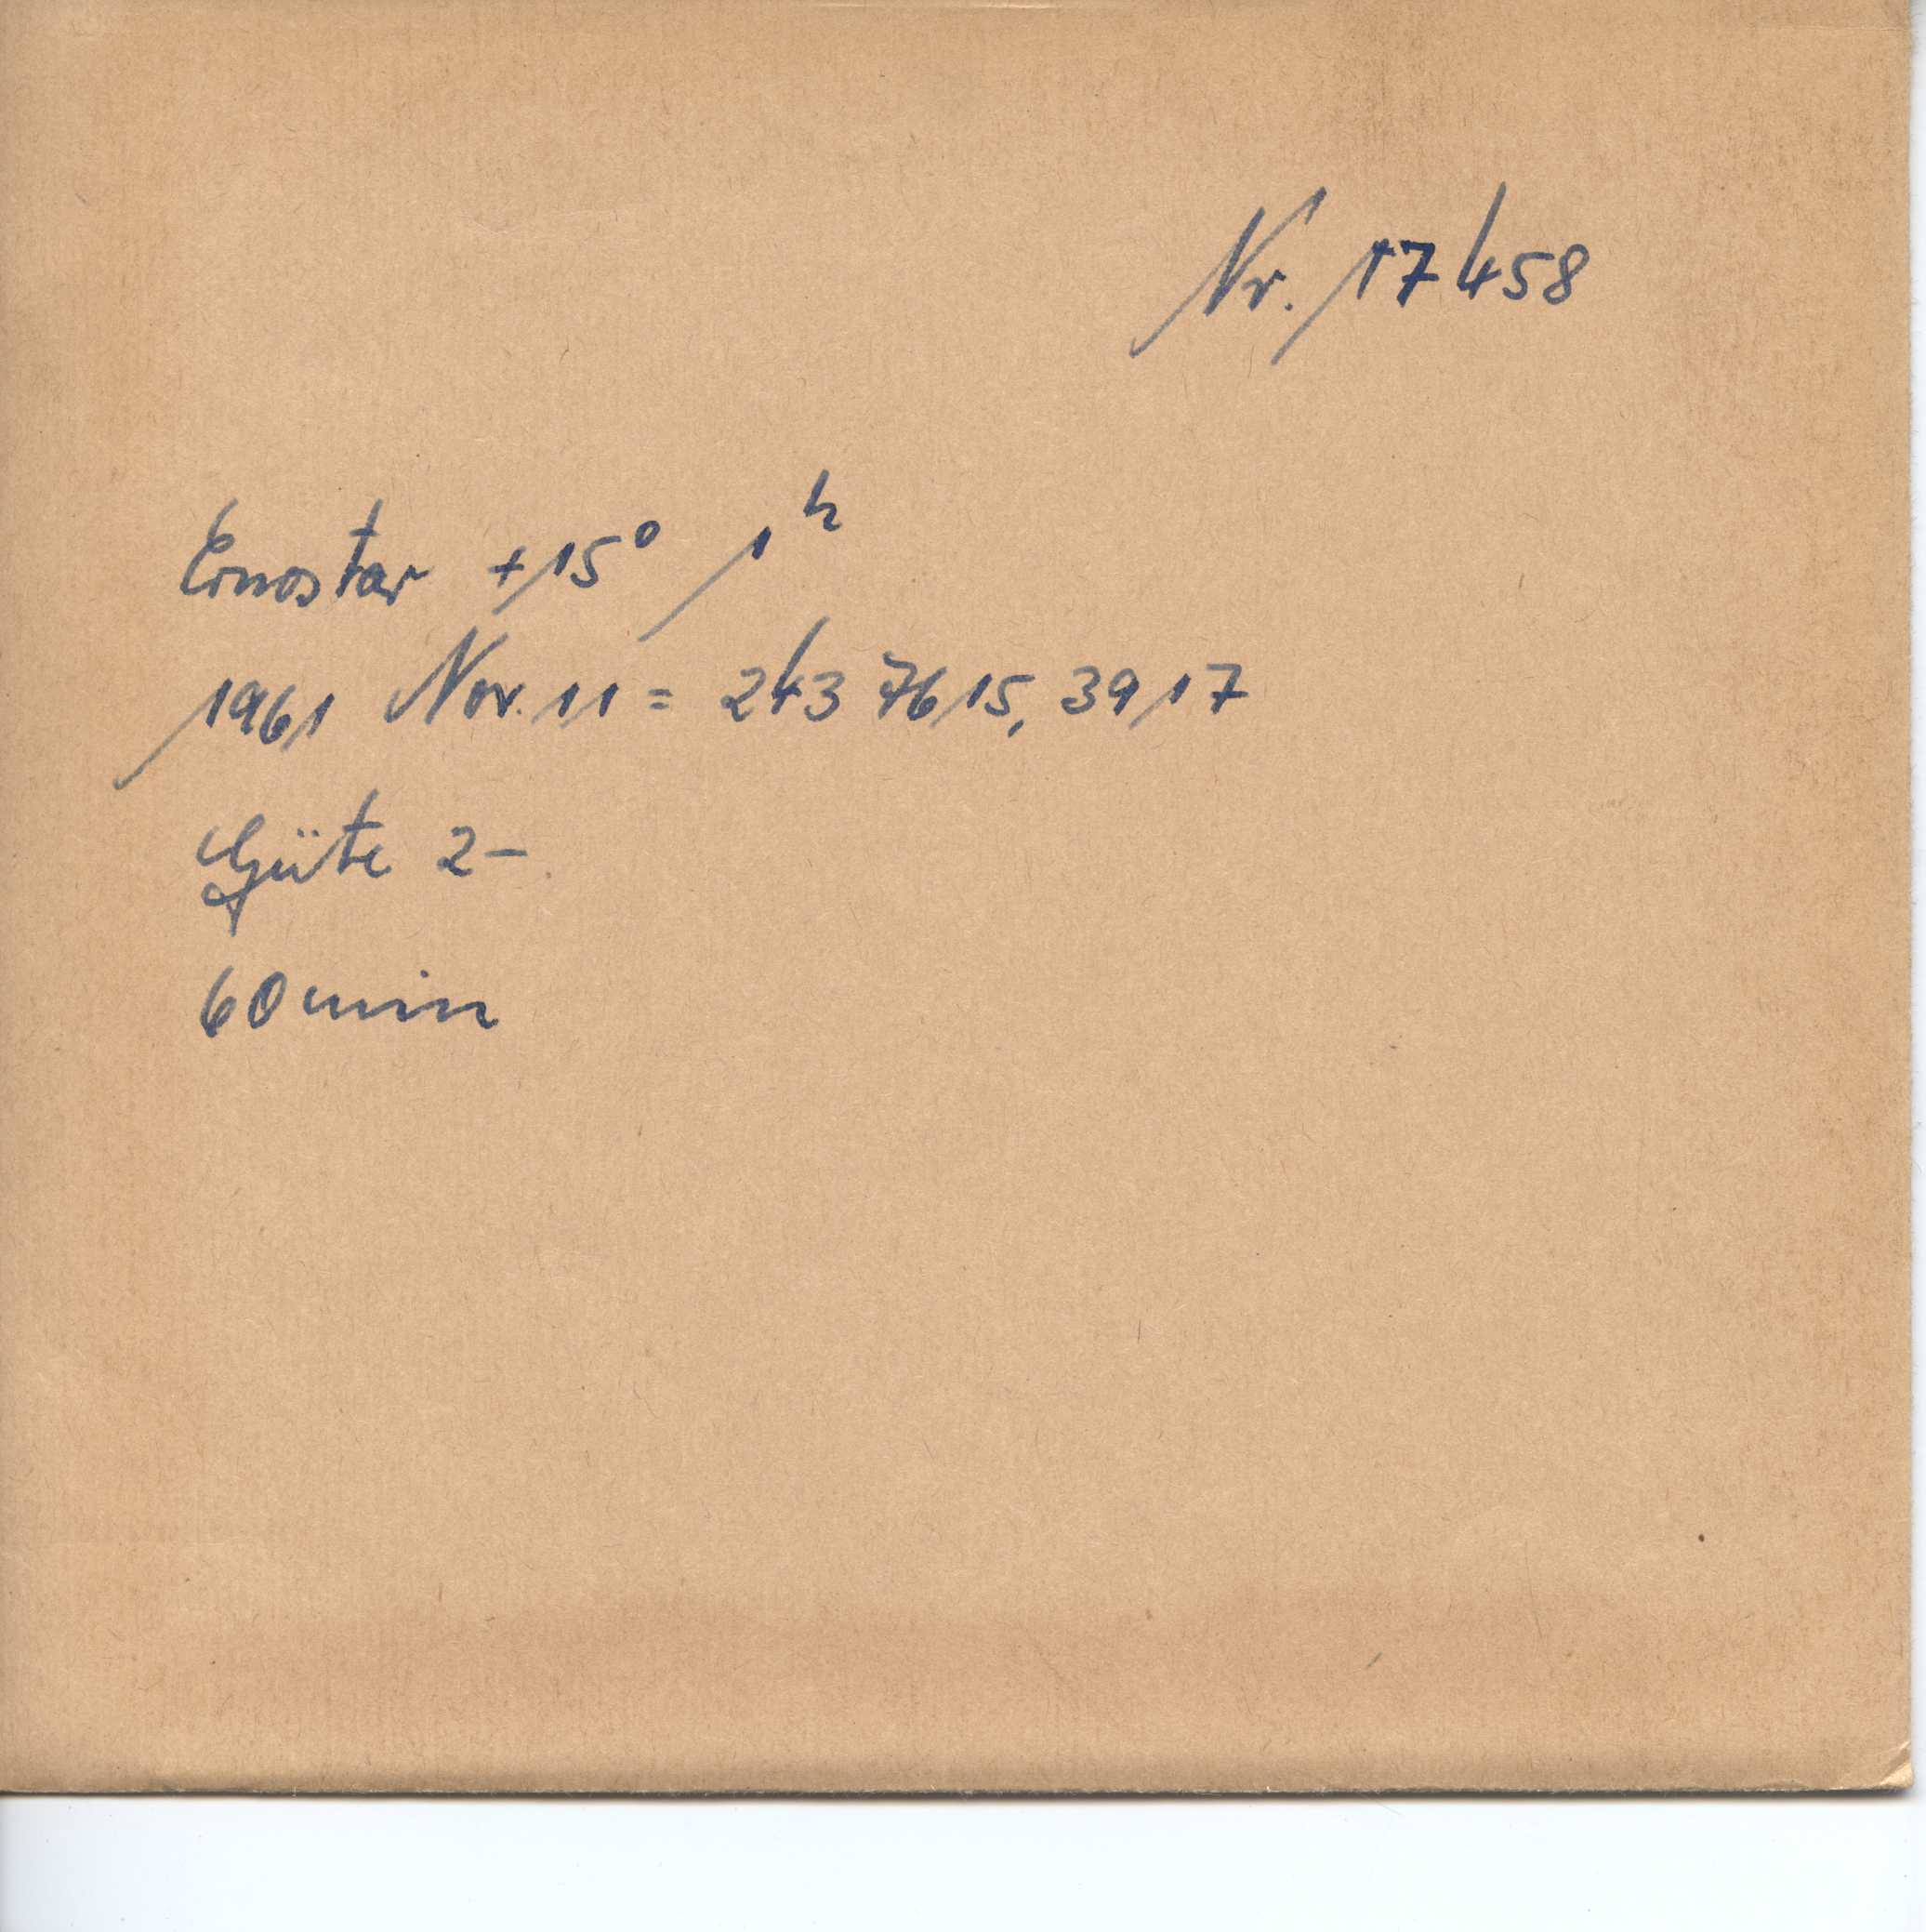 Nr. 17458
Ernostar +15° 1ʰ
1961 Nov. 11 = 243 7615,3917
Güte 2-
60 min